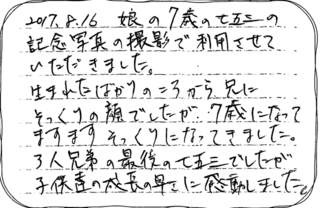 2017.8.16 娘の7歳の七五三の
記念写真の撮影で利用させて
いただきました。
生まれたばかりのころから兄に
そっくりの顔でしたが、7歳になって
ますますそっくりになってきました。
3人兄弟の最後の七五三でしたが
子供達の成長の早さに感動しました。